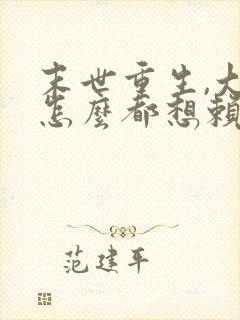 末世重生,大
怎麼都想賴
范建平